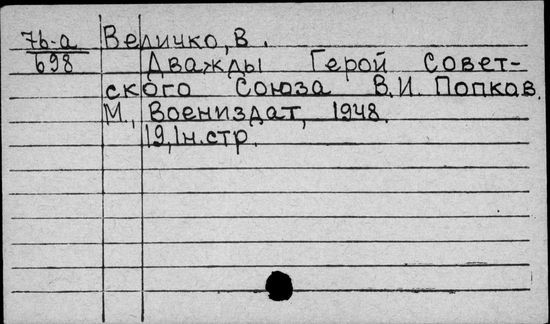 7б-а Величко, В.
698 Дважды Герой Совет-
ского Союза В.И. Попков.
М., Воениздат, 1948.
19,1н.стр.